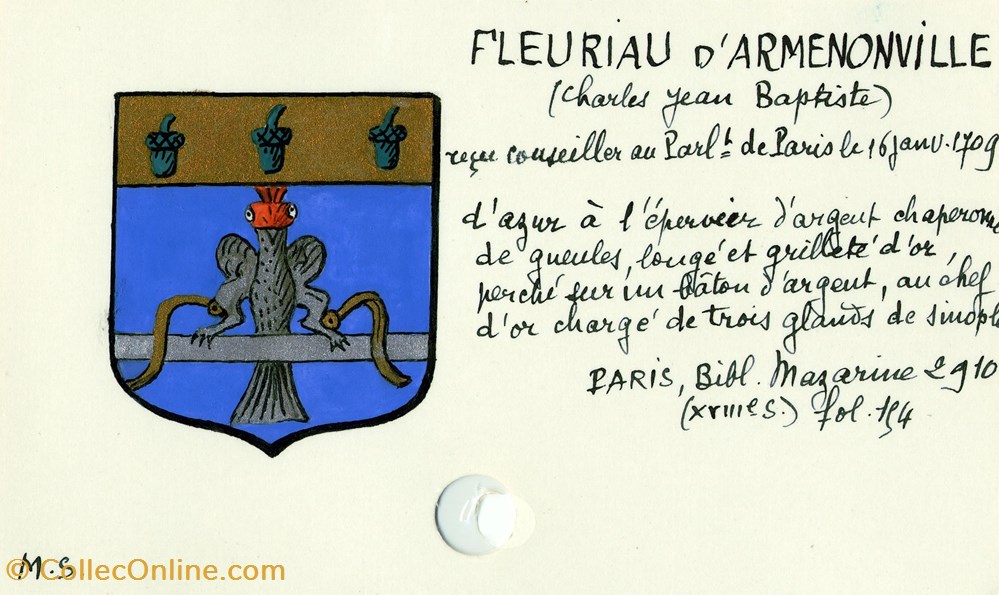 FLEURIAU D'ARMENONVILLE
(Charles Jean Baptiste)
reçu conseiller au Parl^t de Paris le 16 janv. 1709
d'azur à l'épervier d'argent chaperonné
de gueules, longé et grilleté d'or,
perché sur un bâton d'argent, au chef
d'or chargé de trois glands de sinople
PARIS, Bibl. Mazarine 2910
(XVIIIe S.) fol. 154
M.S
© CollecOnline.com